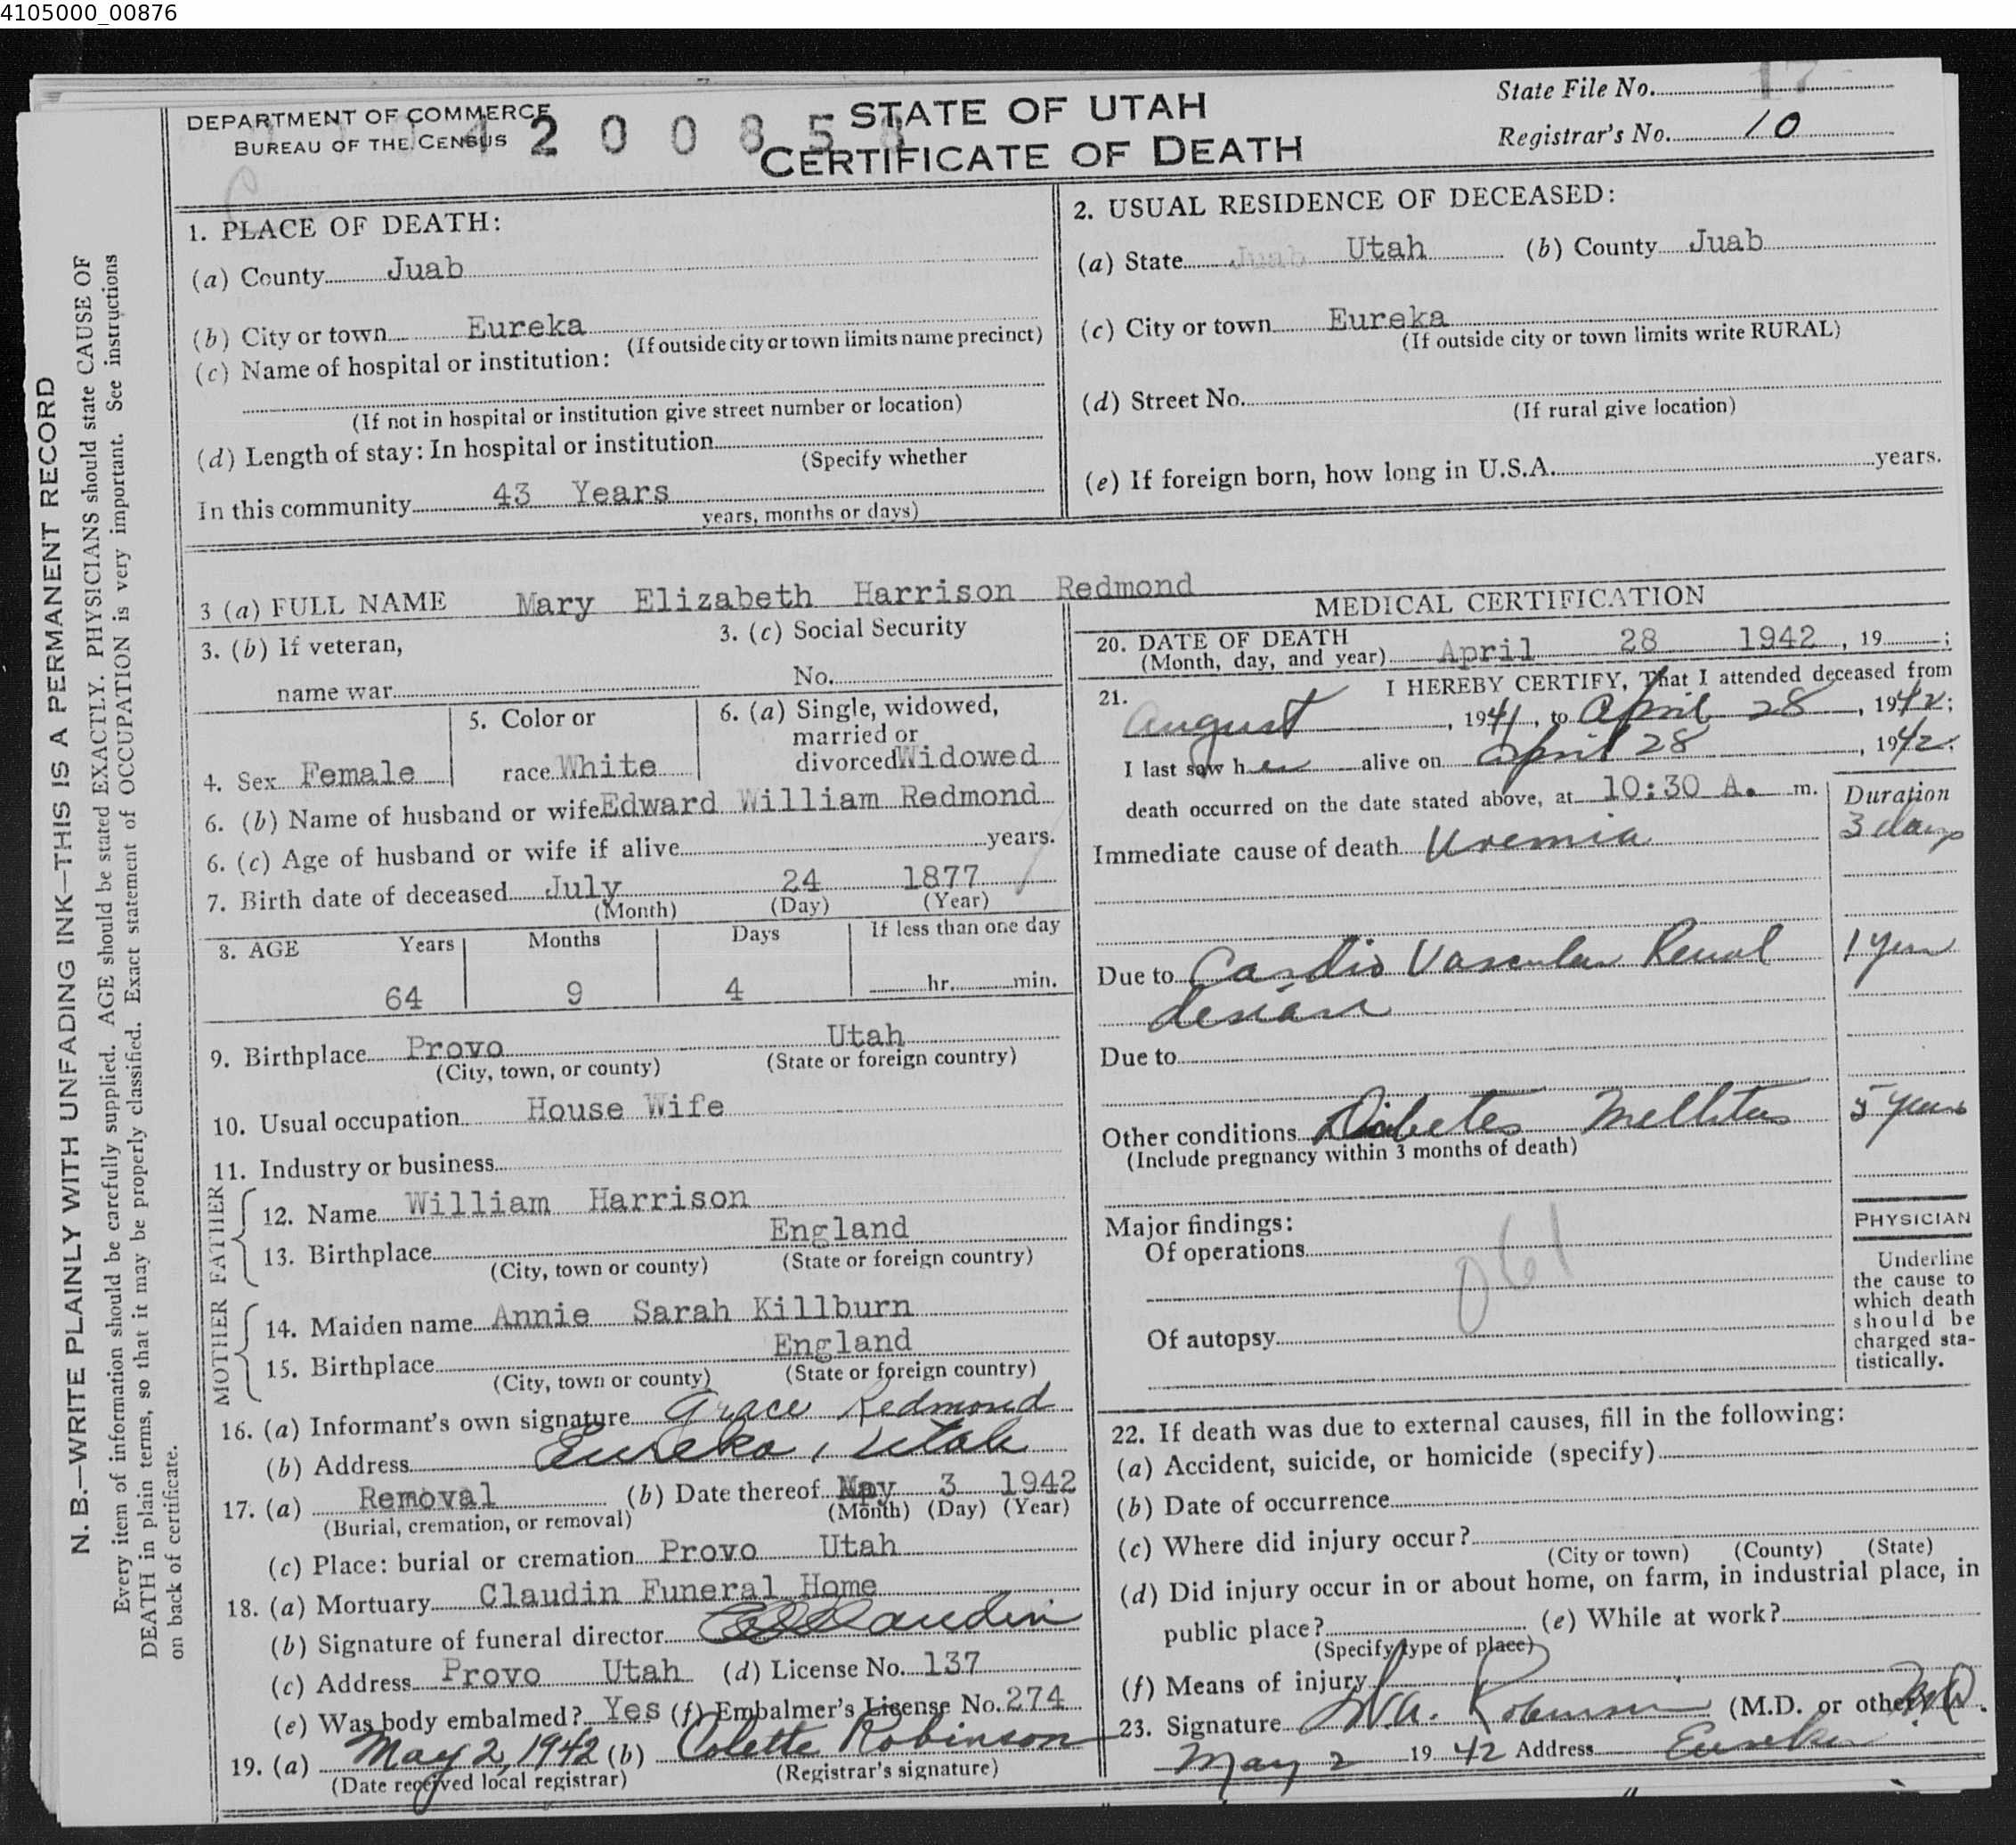 4105000_00876
DEPARTMENT OF COMMERCE
BUREAU OF THE CENSUS
4 2 0 0 8 5 8
STATE OF UTAH
CERTIFICATE OF DEATH
State File No. 17
Registrar's No. 10
N. B.—WRITE PLAINLY WITH UNFADING INK—THIS IS A PERMANENT RECORD
Every item of information should be carefully supplied. AGE should be stated EXACTLY. PHYSICIANS should state CAUSE OF
DEATH in plain terms, so that it may be properly classified. Exact statement of OCCUPATION is very important. See instructions
on back of certificate.
1. PLACE OF DEATH:
(a) County Juab
(b) City or town Eureka
(If outside city or town limits name precinct)
(c) Name of hospital or institution:
(If not in hospital or institution give street number or location)
(d) Length of stay: In hospital or institution
(Specify whether
In this community 43 Years
years, months or days)
2. USUAL RESIDENCE OF DECEASED:
(a) State Juab Utah (b) County Juab
(c) City or town Eureka
(If outside city or town limits write RURAL)
(d) Street No.
(If rural give location)
(e) If foreign born, how long in U.S.A. years.
3 (a) FULL NAME Mary Elizabeth Harrison Redmond
3. (b) If veteran,
name war
3. (c) Social Security
No.
4. Sex Female
5. Color or
race White
6. (a) Single, widowed,
married or
divorced Widowed
6. (b) Name of husband or wife Edward William Redmond
6. (c) Age of husband or wife if alive years.
7. Birth date of deceased July 24 1877
(Month) (Day) (Year)
8. AGE Years Months Days If less than one day
64 9 4 hr. min.
9. Birthplace Provo Utah
(City, town, or county) (State or foreign country)
10. Usual occupation House Wife
11. Industry or business
FATHER
12. Name William Harrison
13. Birthplace England
(City, town or county) (State or foreign country)
MOTHER
14. Maiden name Annie Sarah Killburn
15. Birthplace England
(City, town or county) (State or foreign country)
16. (a) Informant's own signature Grace Redmond
(b) Address Eureka, Utah
17. (a) Removal (b) Date thereof May 3 1942
(Burial, cremation, or removal) (Month) (Day) (Year)
(c) Place: burial or cremation Provo Utah
18. (a) Mortuary Claudin Funeral Home
(b) Signature of funeral director Claudin
(c) Address Provo Utah (d) License No. 137
(e) Was body embalmed? Yes (f) Embalmer's License No. 274
19. (a) May 2, 1942 (b) Colette Robinson
(Date received local registrar) (Registrar's signature)
MEDICAL CERTIFICATION
20. DATE OF DEATH
(Month, day, and year) April 28 1942, 19 ;
21. I HEREBY CERTIFY, That I attended deceased from
August, 1941, to April 28, 1942;
I last saw her alive on April 28, 1942;
death occurred on the date stated above, at 10:30 A. m.
Duration
Immediate cause of death Uremia 3 days
Due to Cardio Vascular Renal 1 year
disease
Due to
Other conditions Diabetes Mellitus 5 years
(Include pregnancy within 3 months of death)
Major findings:
Of operations
061
Of autopsy
PHYSICIAN
Underline
the cause to
which death
should be
charged sta-
tistically.
22. If death was due to external causes, fill in the following:
(a) Accident, suicide, or homicide (specify)
(b) Date of occurrence
(c) Where did injury occur?
(City or town) (County) (State)
(d) Did injury occur in or about home, on farm, in industrial place, in
public place? (e) While at work?
(Specify type of place)
(f) Means of injury
23. Signature Robinson (M.D. or other) M.D.
May 2 1942 Address Eureka